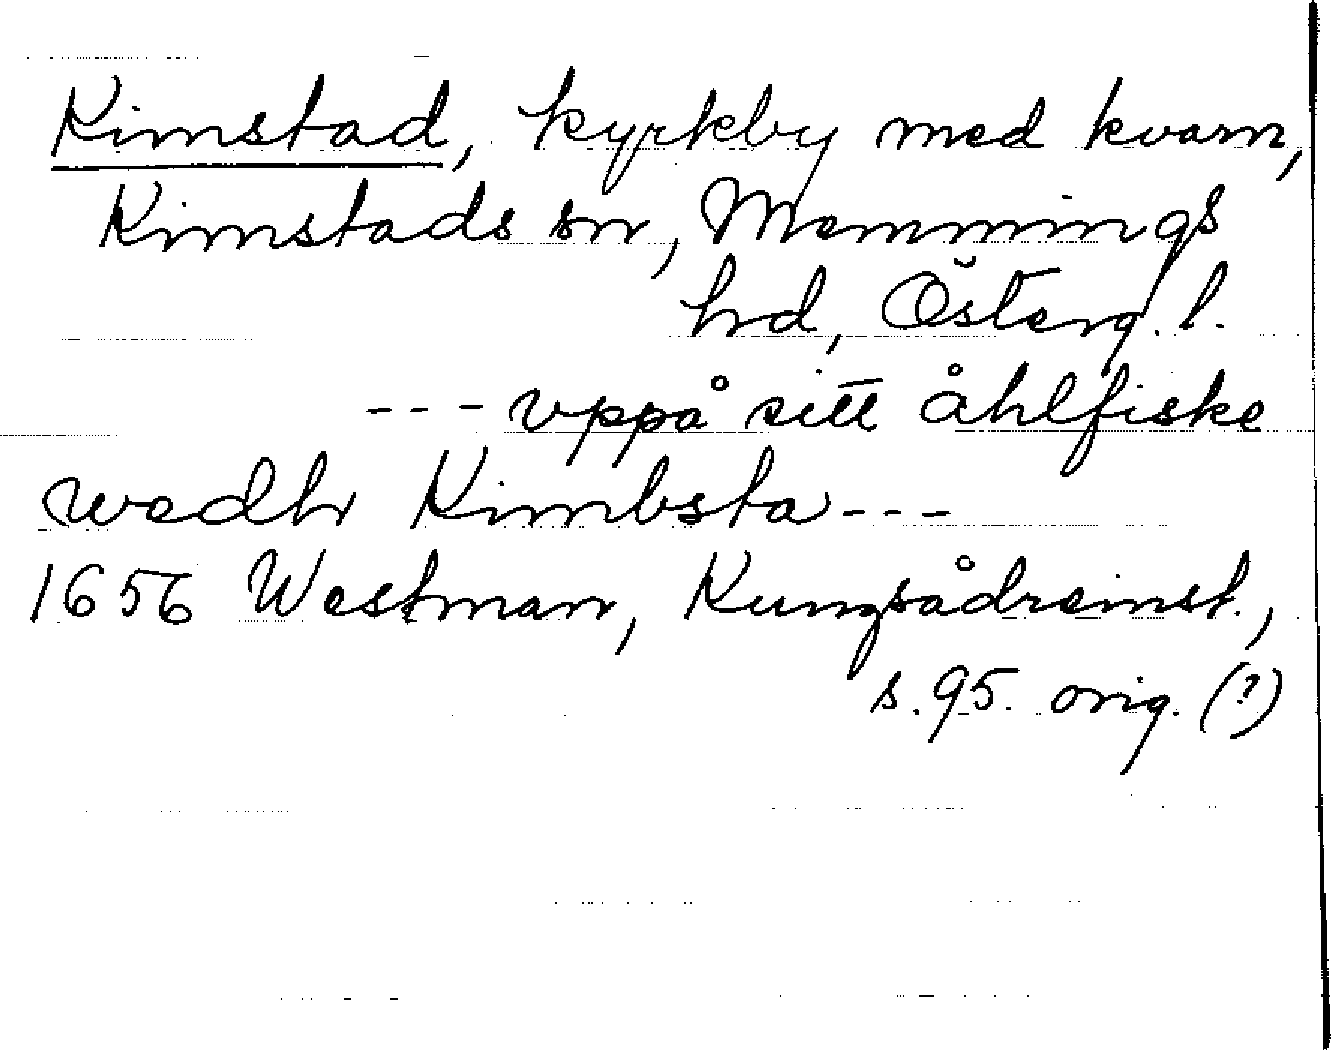 Kimstad, kyrkby med kvarn,
Kimstads sn, Memmings
hd, Österg. l.
--- vppå sitt åhlfiske
wedh Kimbsta ---
1656 Westman, Kungsådreinst.,
s. 95. orig. (?)